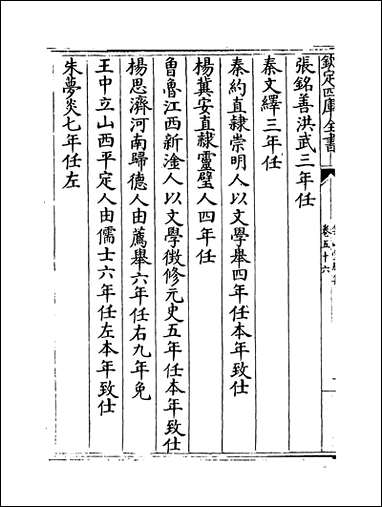 欽定四庫全書
卷五十六
張銘善洪武三年任
秦文繹三年任
秦約直隸崇明人以文學舉四年任本年致仕
楊冀安直隸靈璧人四年任
曾魯江西新淦人以文學徵修元史五年任本年致仕
楊思濟河南歸德人由薦舉六年任右九年免
王中立山西平定人由儒士六年任左本年致仕
朱夢炎七年任左